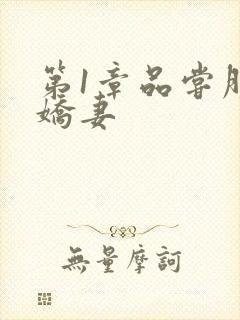 第1章品尝
娇妻
無量摩訶